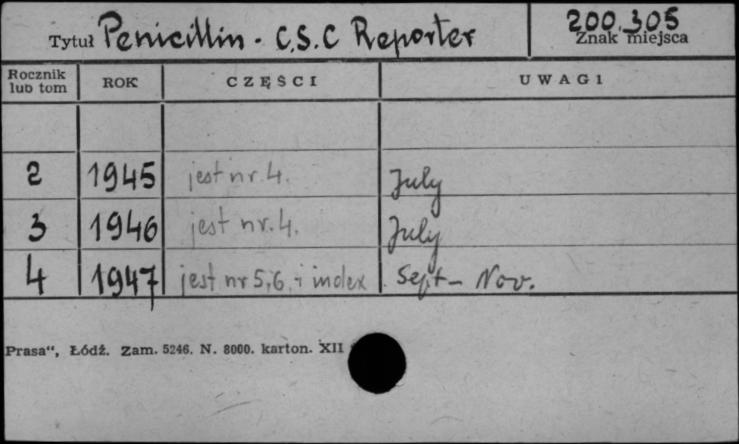 Tytuł Penicillin - C.S.C Reporter 200.305
Znak miejsca
Rocznik lub tom ROK CZĘŚCI UWAGI
2 1945 jest nr. 4. July
3 1946 jest nr. 4. July
4 1947 jest nr 5, 6, i index Sept - Nov.
Prasa“, Łódź. Zam. 5246. N. 8000. karton. XII